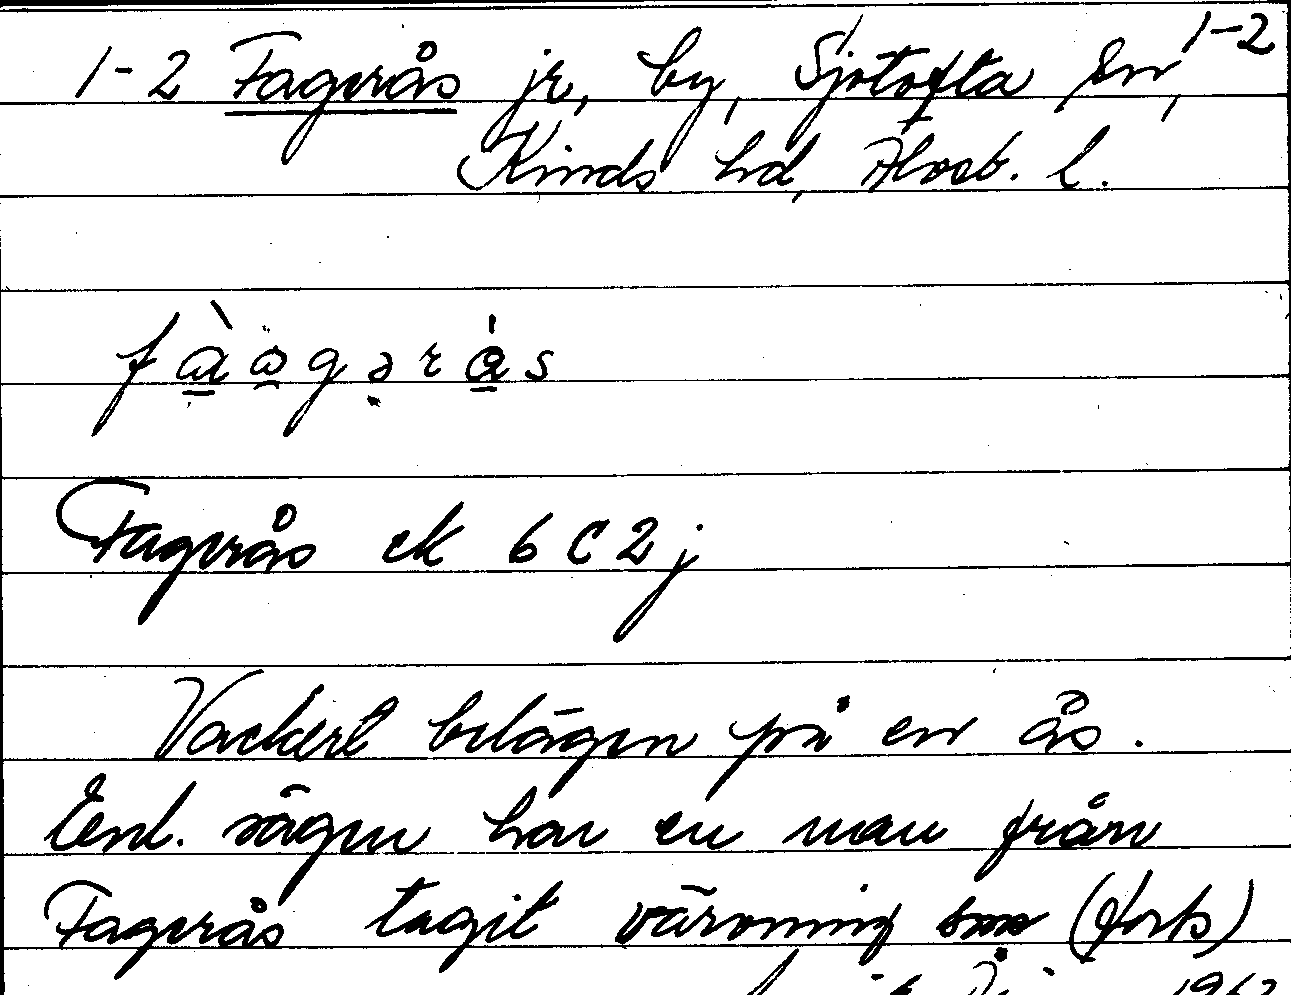 1-2
1-2 Fagerås jr, by, Sjötofta sn,
Kinds hd, Älvsb. l.
Fagerås ek 6 C 2 j
Vackert belägen på en ås.
Enl. sägen har en man från
Fagerås tagit värvning som (forts)